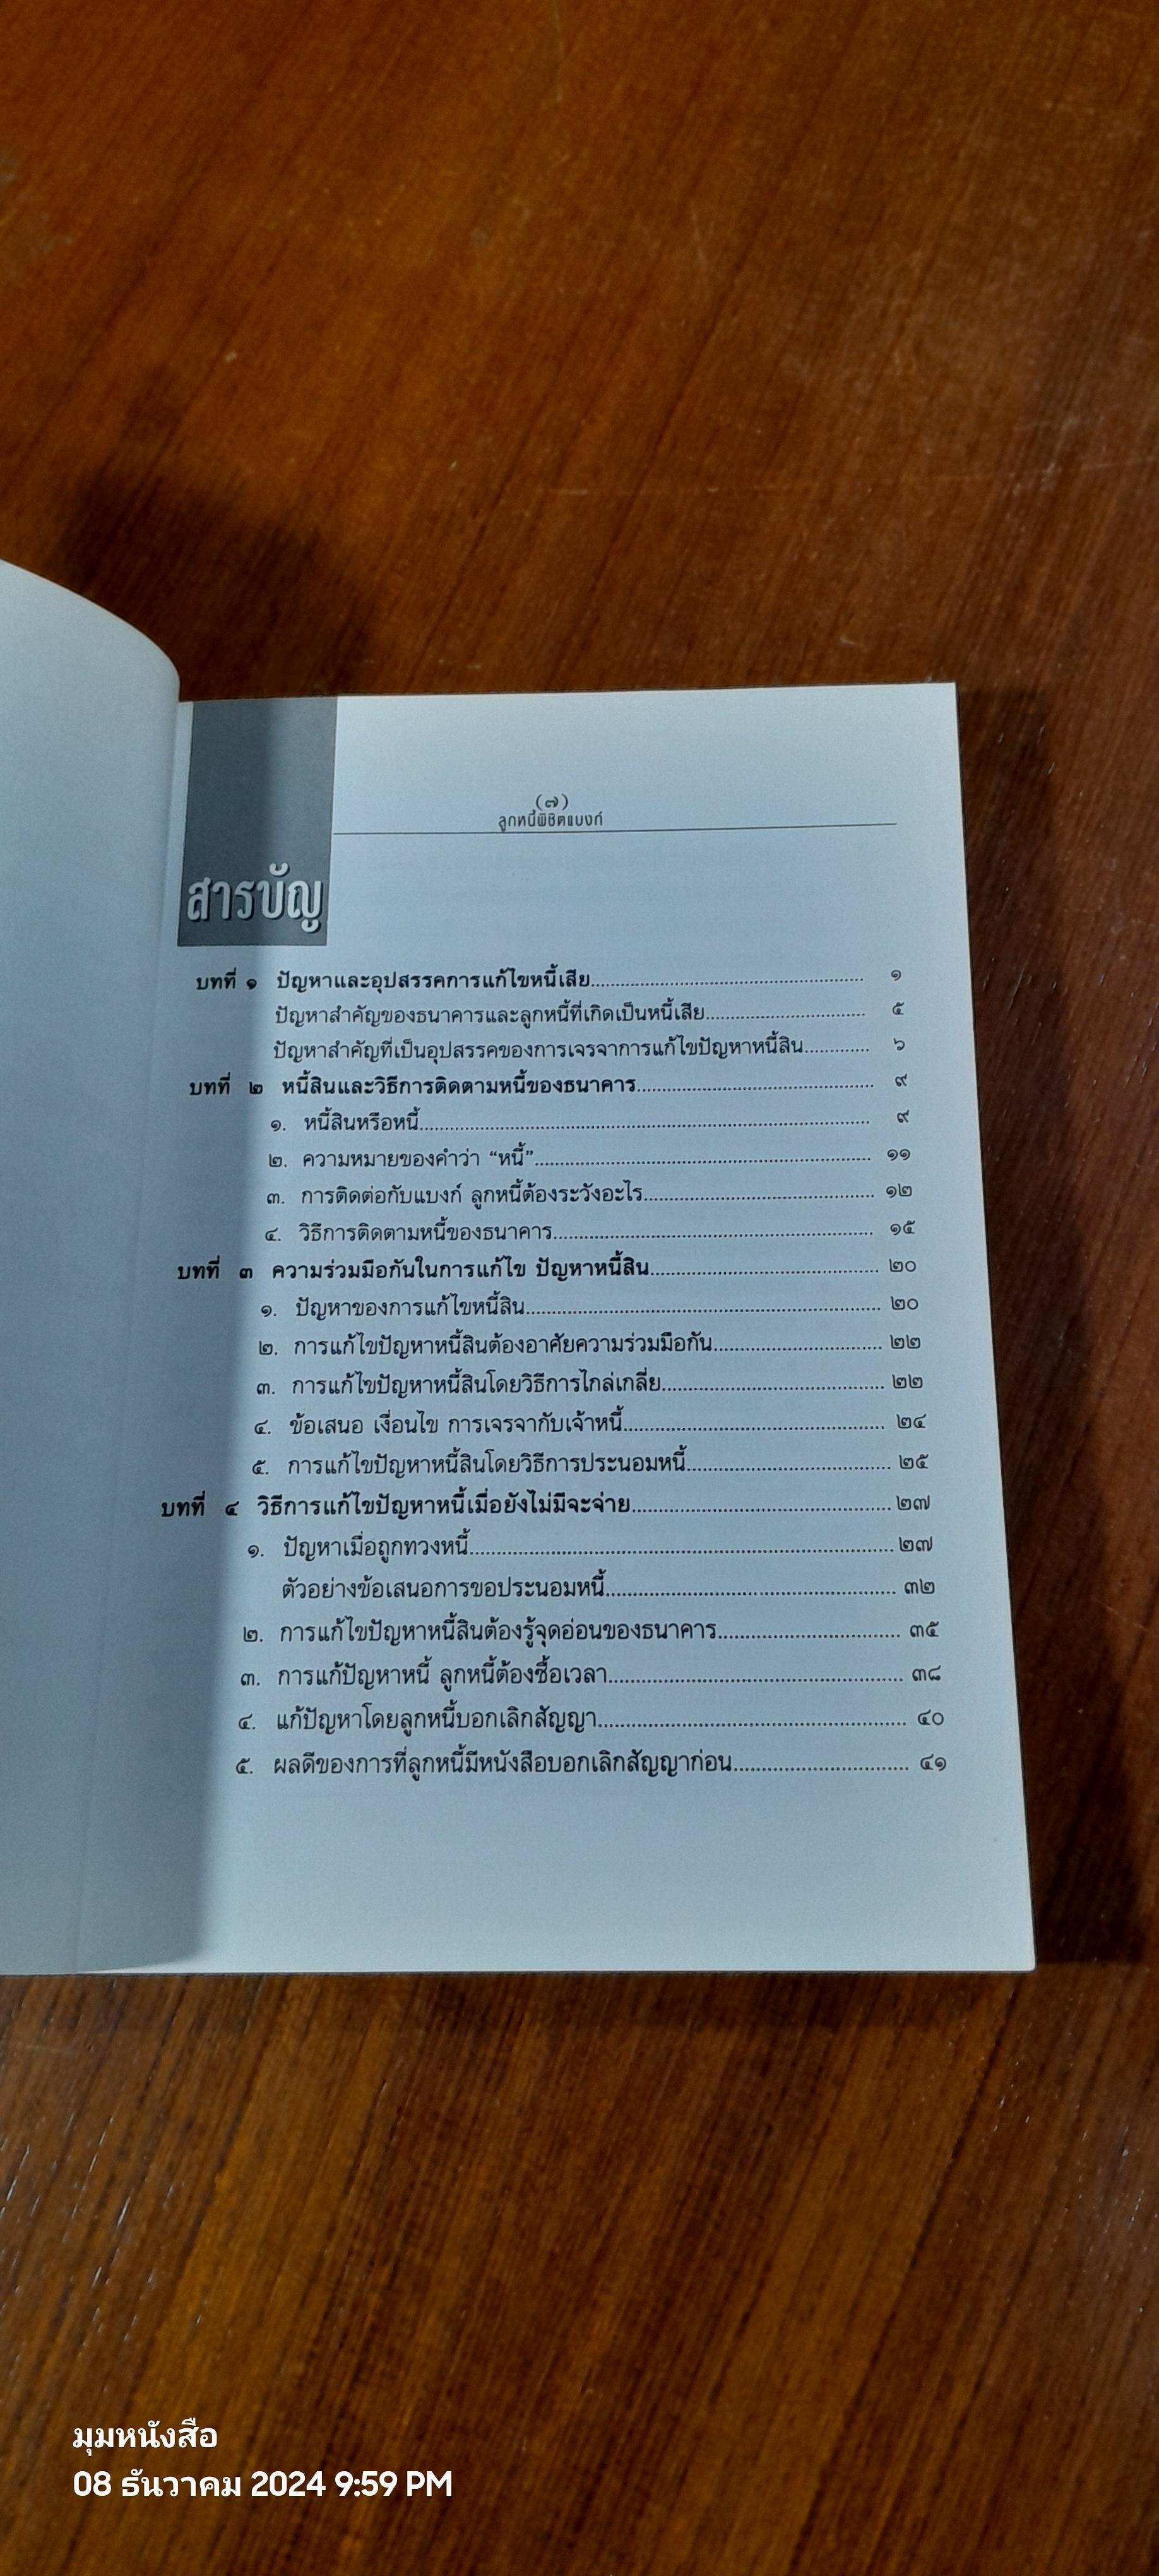 (๗)
ลูกหนี้พิชิตแบงก์
สารบัญ
บทที่ ๑ ปัญหาและอุปสรรคการแก้ไขหนี้เสีย.................... ๑
ปัญหาสำคัญของธนาคารและลูกหนี้ที่เกิดเป็นหนี้เสีย.................... ๕
ปัญหาสำคัญที่เป็นอุปสรรคของการเจรจาการแก้ไขปัญหาหนี้สิน............ ๖
บทที่ ๒ หนี้สินและวิธีการติดตามหนี้ของธนาคาร.................... ๙
๑. หนี้สินหรือหนี้.................... ๙
๒. ความหมายของคำว่า “หนี้”.................... ๑๑
๓. การติดต่อกับแบงก์ ลูกหนี้ต้องระวังอะไร.................... ๑๒
๔. วิธีการติดตามหนี้ของธนาคาร.................... ๑๕
บทที่ ๓ ความร่วมมือกันในการแก้ไข ปัญหาหนี้สิน.................... ๒๐
๑. ปัญหาของการแก้ไขหนี้สิน.................... ๒๐
๒. การแก้ไขปัญหาหนี้สินต้องอาศัยความร่วมมือกัน.................... ๒๒
๓. การแก้ไขปัญหาหนี้สินโดยวิธีการไกล่เกลี่ย.................... ๒๒
๔. ข้อเสนอ เงื่อนไข การเจรจากับเจ้าหนี้.................... ๒๔
๕. การแก้ไขปัญหาหนี้สินโดยวิธีการประนอมหนี้.................... ๒๕
บทที่ ๔ วิธีการแก้ไขปัญหาหนี้เมื่อยังไม่มีจะจ่าย.................... ๒๗
๑. ปัญหาเมื่อถูกทวงหนี้.................... ๒๗
ตัวอย่างข้อเสนอการขอประนอมหนี้.................... ๓๒
๒. การแก้ไขปัญหาหนี้สินต้องรู้จุดอ่อนของธนาคาร.................... ๓๕
๓. การแก้ปัญหาหนี้ ลูกหนี้ต้องซื้อเวลา.................... ๓๘
๔. แก้ปัญหาโดยลูกหนี้บอกเลิกสัญญา.................... ๔๐
๕. ผลดีของการที่ลูกหนี้มีหนังสือบอกเลิกสัญญาก่อน.................... ๔๑
มุมหนังสือ
08 ธันวาคม 2024 9:59 PM